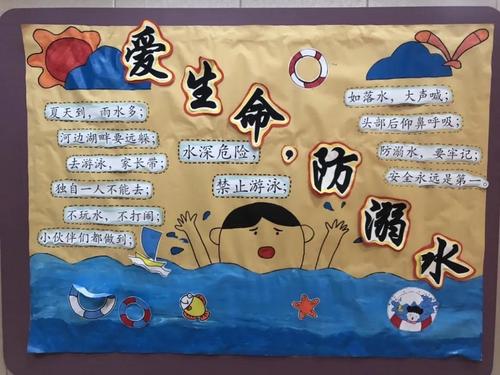 爱生命，防溺水
夏天到，雨水多；
河边湖畔要远躲；
去游泳，家长带；
独自一人不能去；
不玩水，不打闹；
小伙伴们都做到；
水深危险，
禁止游泳；
如落水，大声喊；
头部后仰鼻呼吸；
防溺水，要牢记；
安全永远是第一。